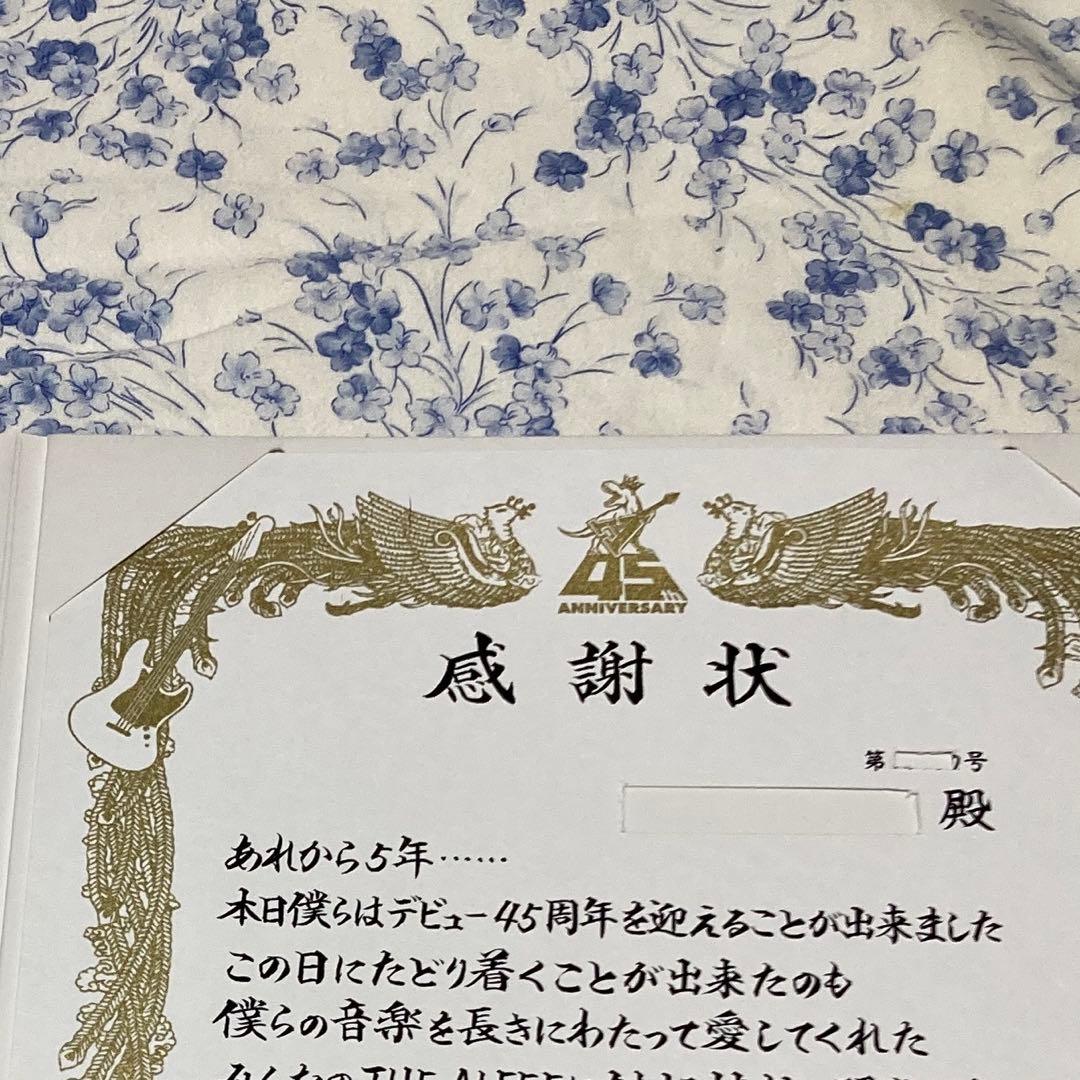 45th
ANNIVERSARY
感謝状
第 号
殿
あれから5年……
本日僕らはデビュー45周年を迎えることが出来ました
この日にたどり着くことが出来たのも
僕らの音楽を長きにわたって愛してくれた
みんなのTHE ALFEE